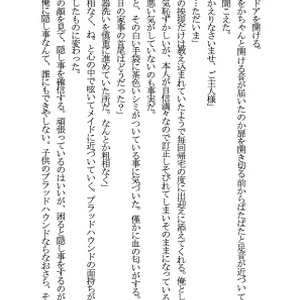 ドアを開ける。
をかちゃんと開ける音が届いたのか扉を開き切る前からぱたぱたと足音が近づいて
聞こえた。
かえりなさいませ、ご主人様」
…ただいま」
の挨拶だけは教え込まれていたようで毎回帰宅の度に出迎えに添えてくれる。俺とし
気恥ずかしいが、本人が自信満々なので訂正しそびれてしまいそのままになっている
悪い気がしていないのも事実だ。
と、その白い手袋に茶色いシミがついている事に気づいた。僅かに血の匂いがする。
日の家事の首尾はどうだった？」
器洗いを慎重に進めていた所だ。なんとか粗相なく」
相なく、ね、と心の中で呟いてメイドに近づいていく。ブラッドハウンドの面持ちが
したものに変わった。
の顔を見て、隠し事を確信する。頑張っているのはいいが、困ると隠し事をするのが
俺に隠し事なんて、誰にもできやしない。子供のブラッドハウンドならなおさら、そ